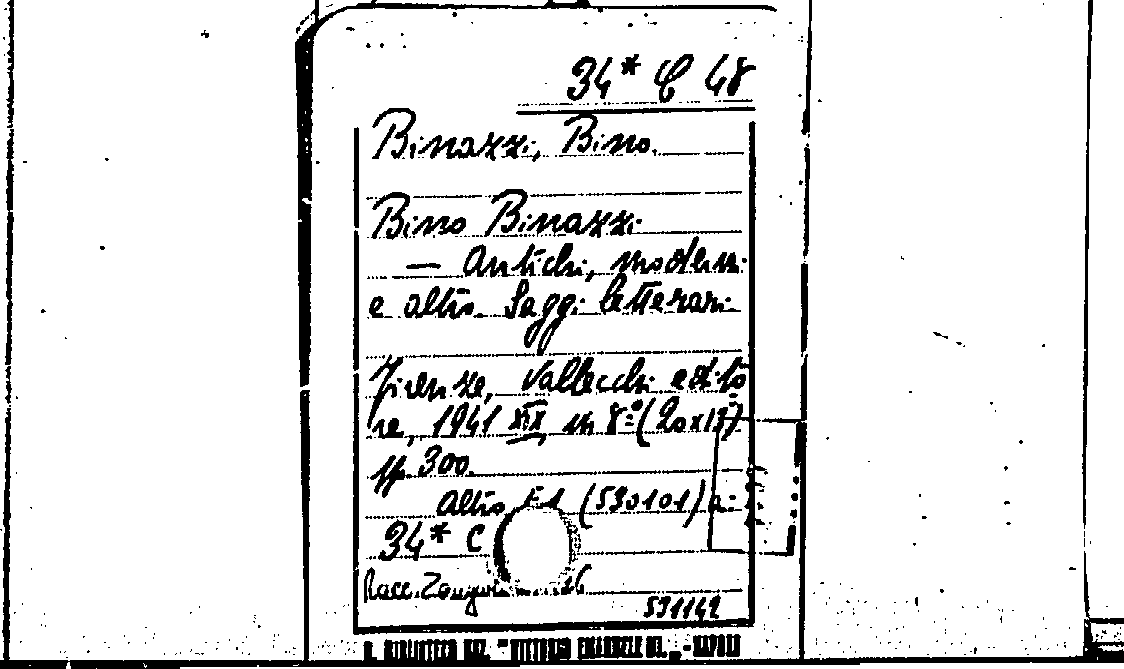 34* C 48
Binazzi, Bino.
Bino Binazzi
— Antichi, moderni
e altro. Saggi letterari.
Firenze, Vallecchi edito
re, 1941 XIX, in 8º (20x13)
pp. 300.
Altro (530101) a:
34* C
Racc.
531142
R. BIBLIOTECA NAZ. "VITTORIO EMANUELE III" - NAPOLI